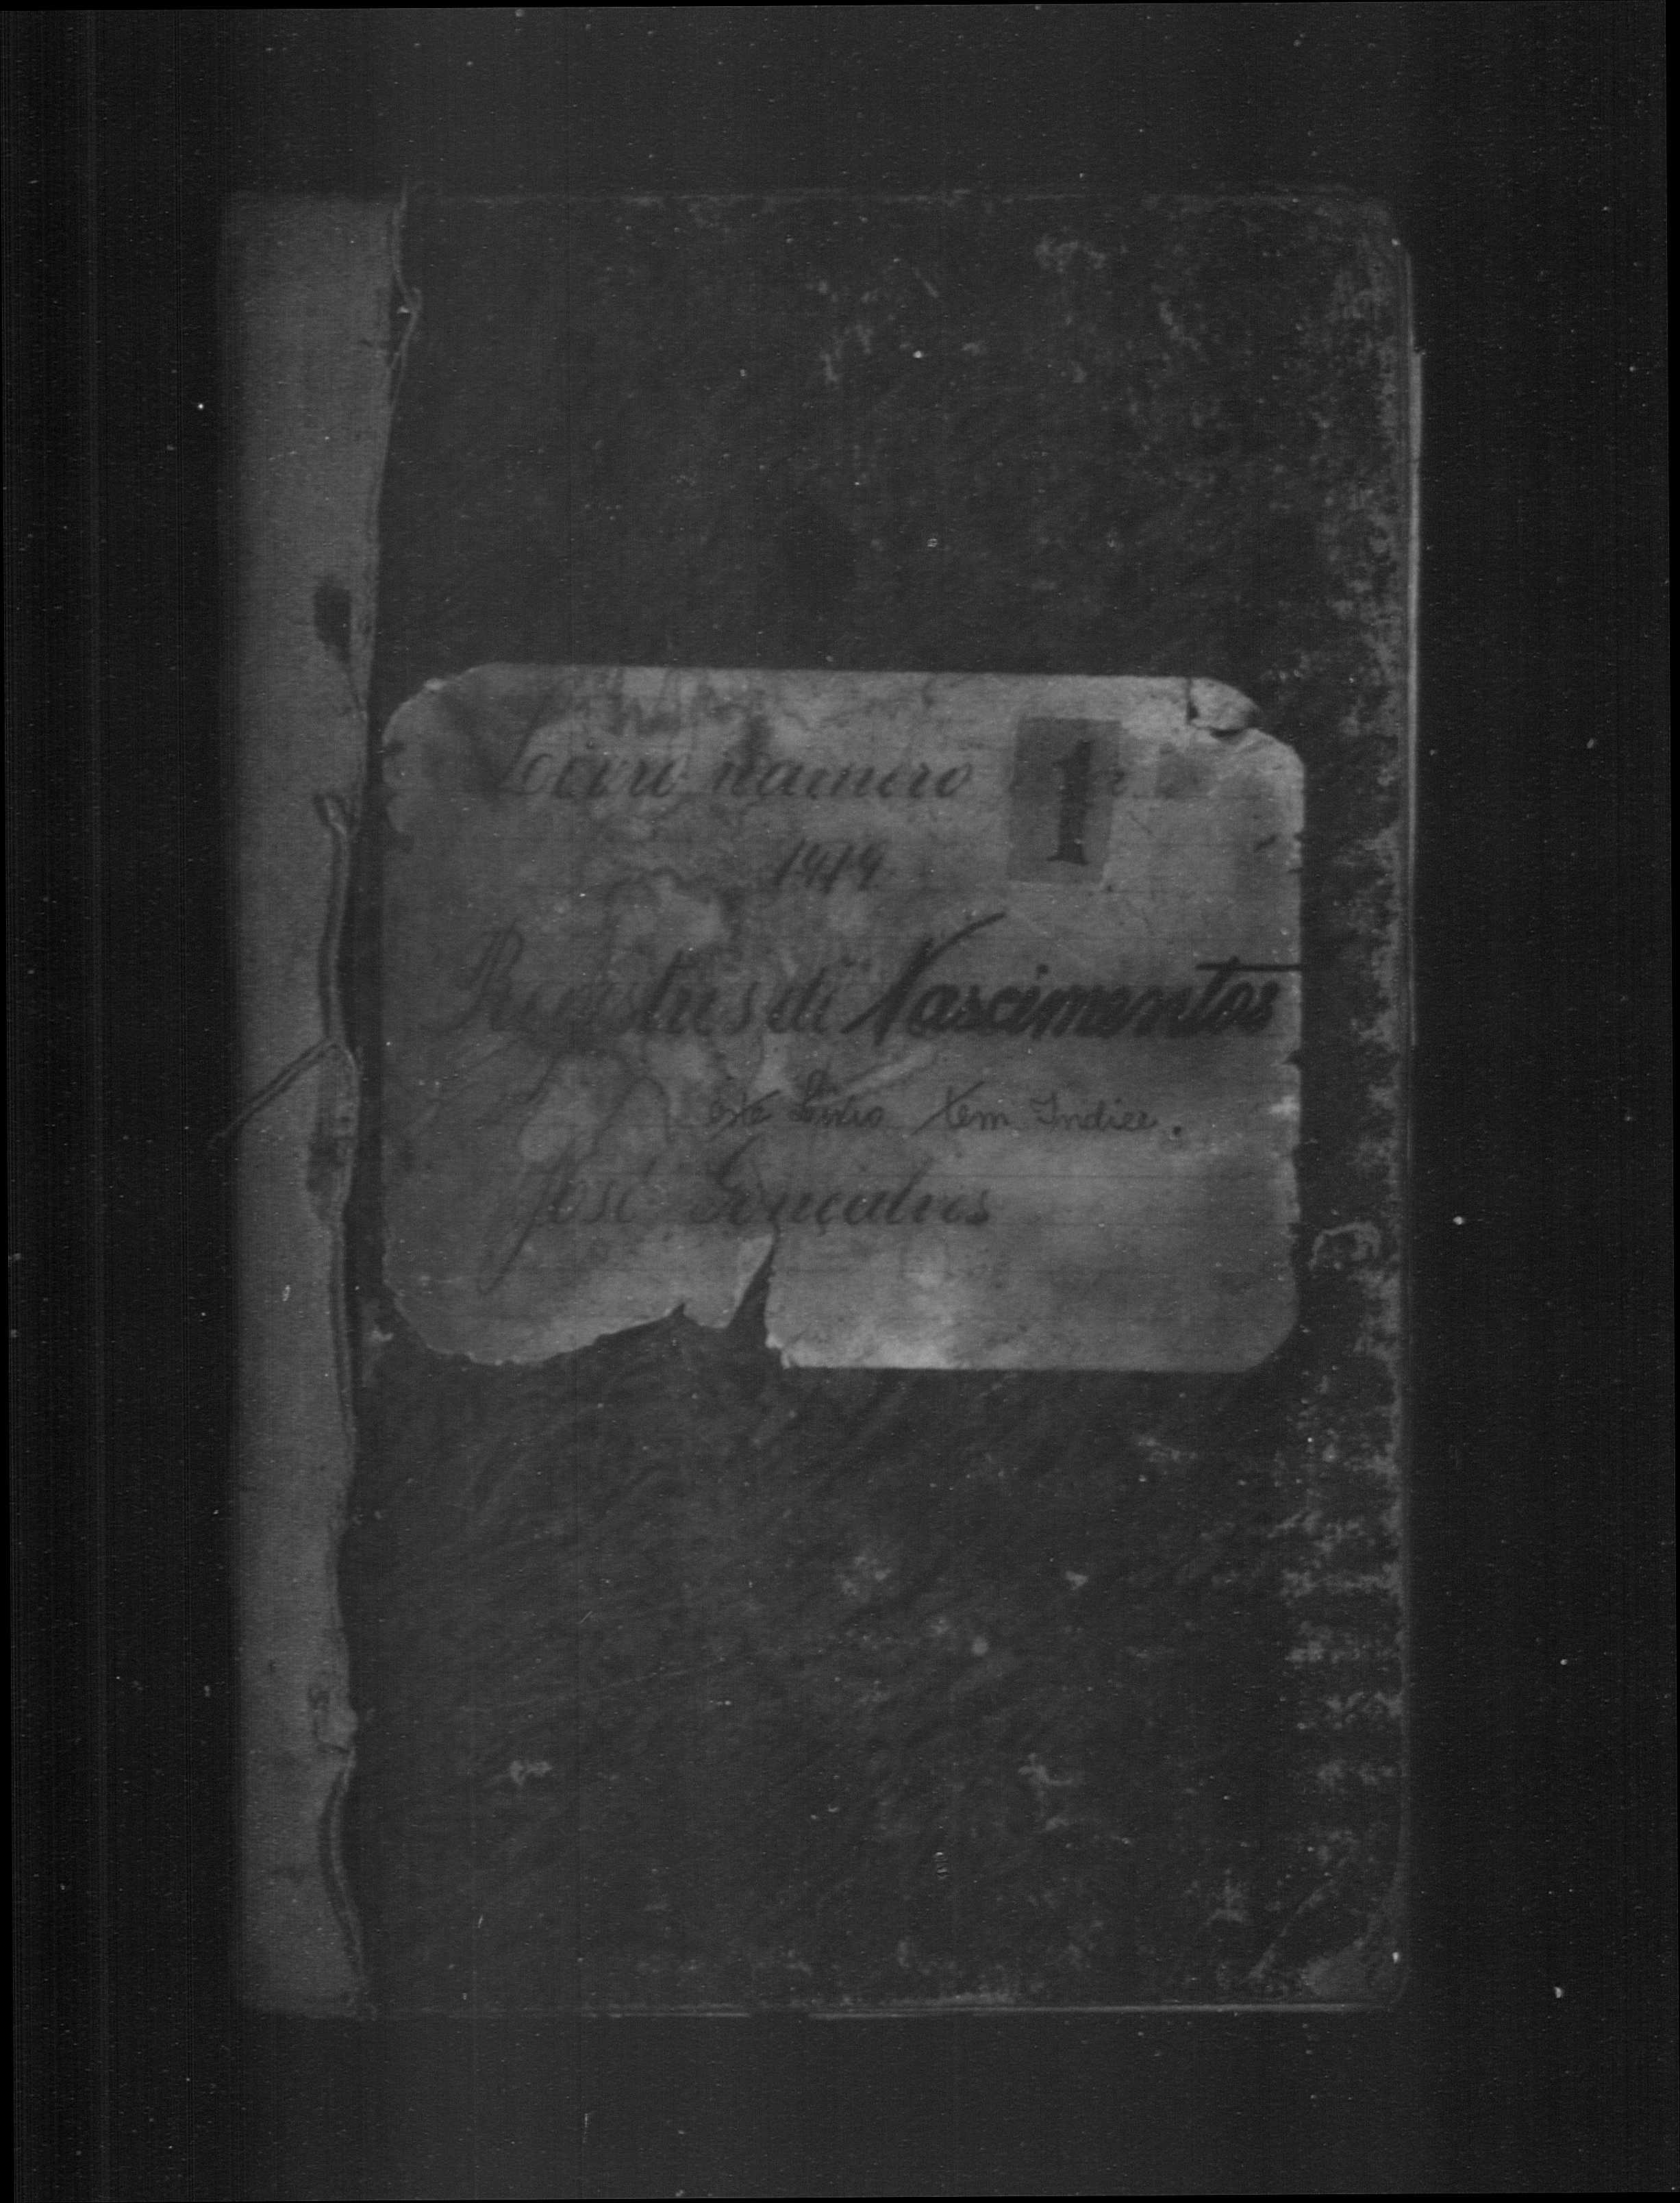 Livro numero 1
1919
Registros de Nascimentos
este Livro tem Indice.
José Gonçalves